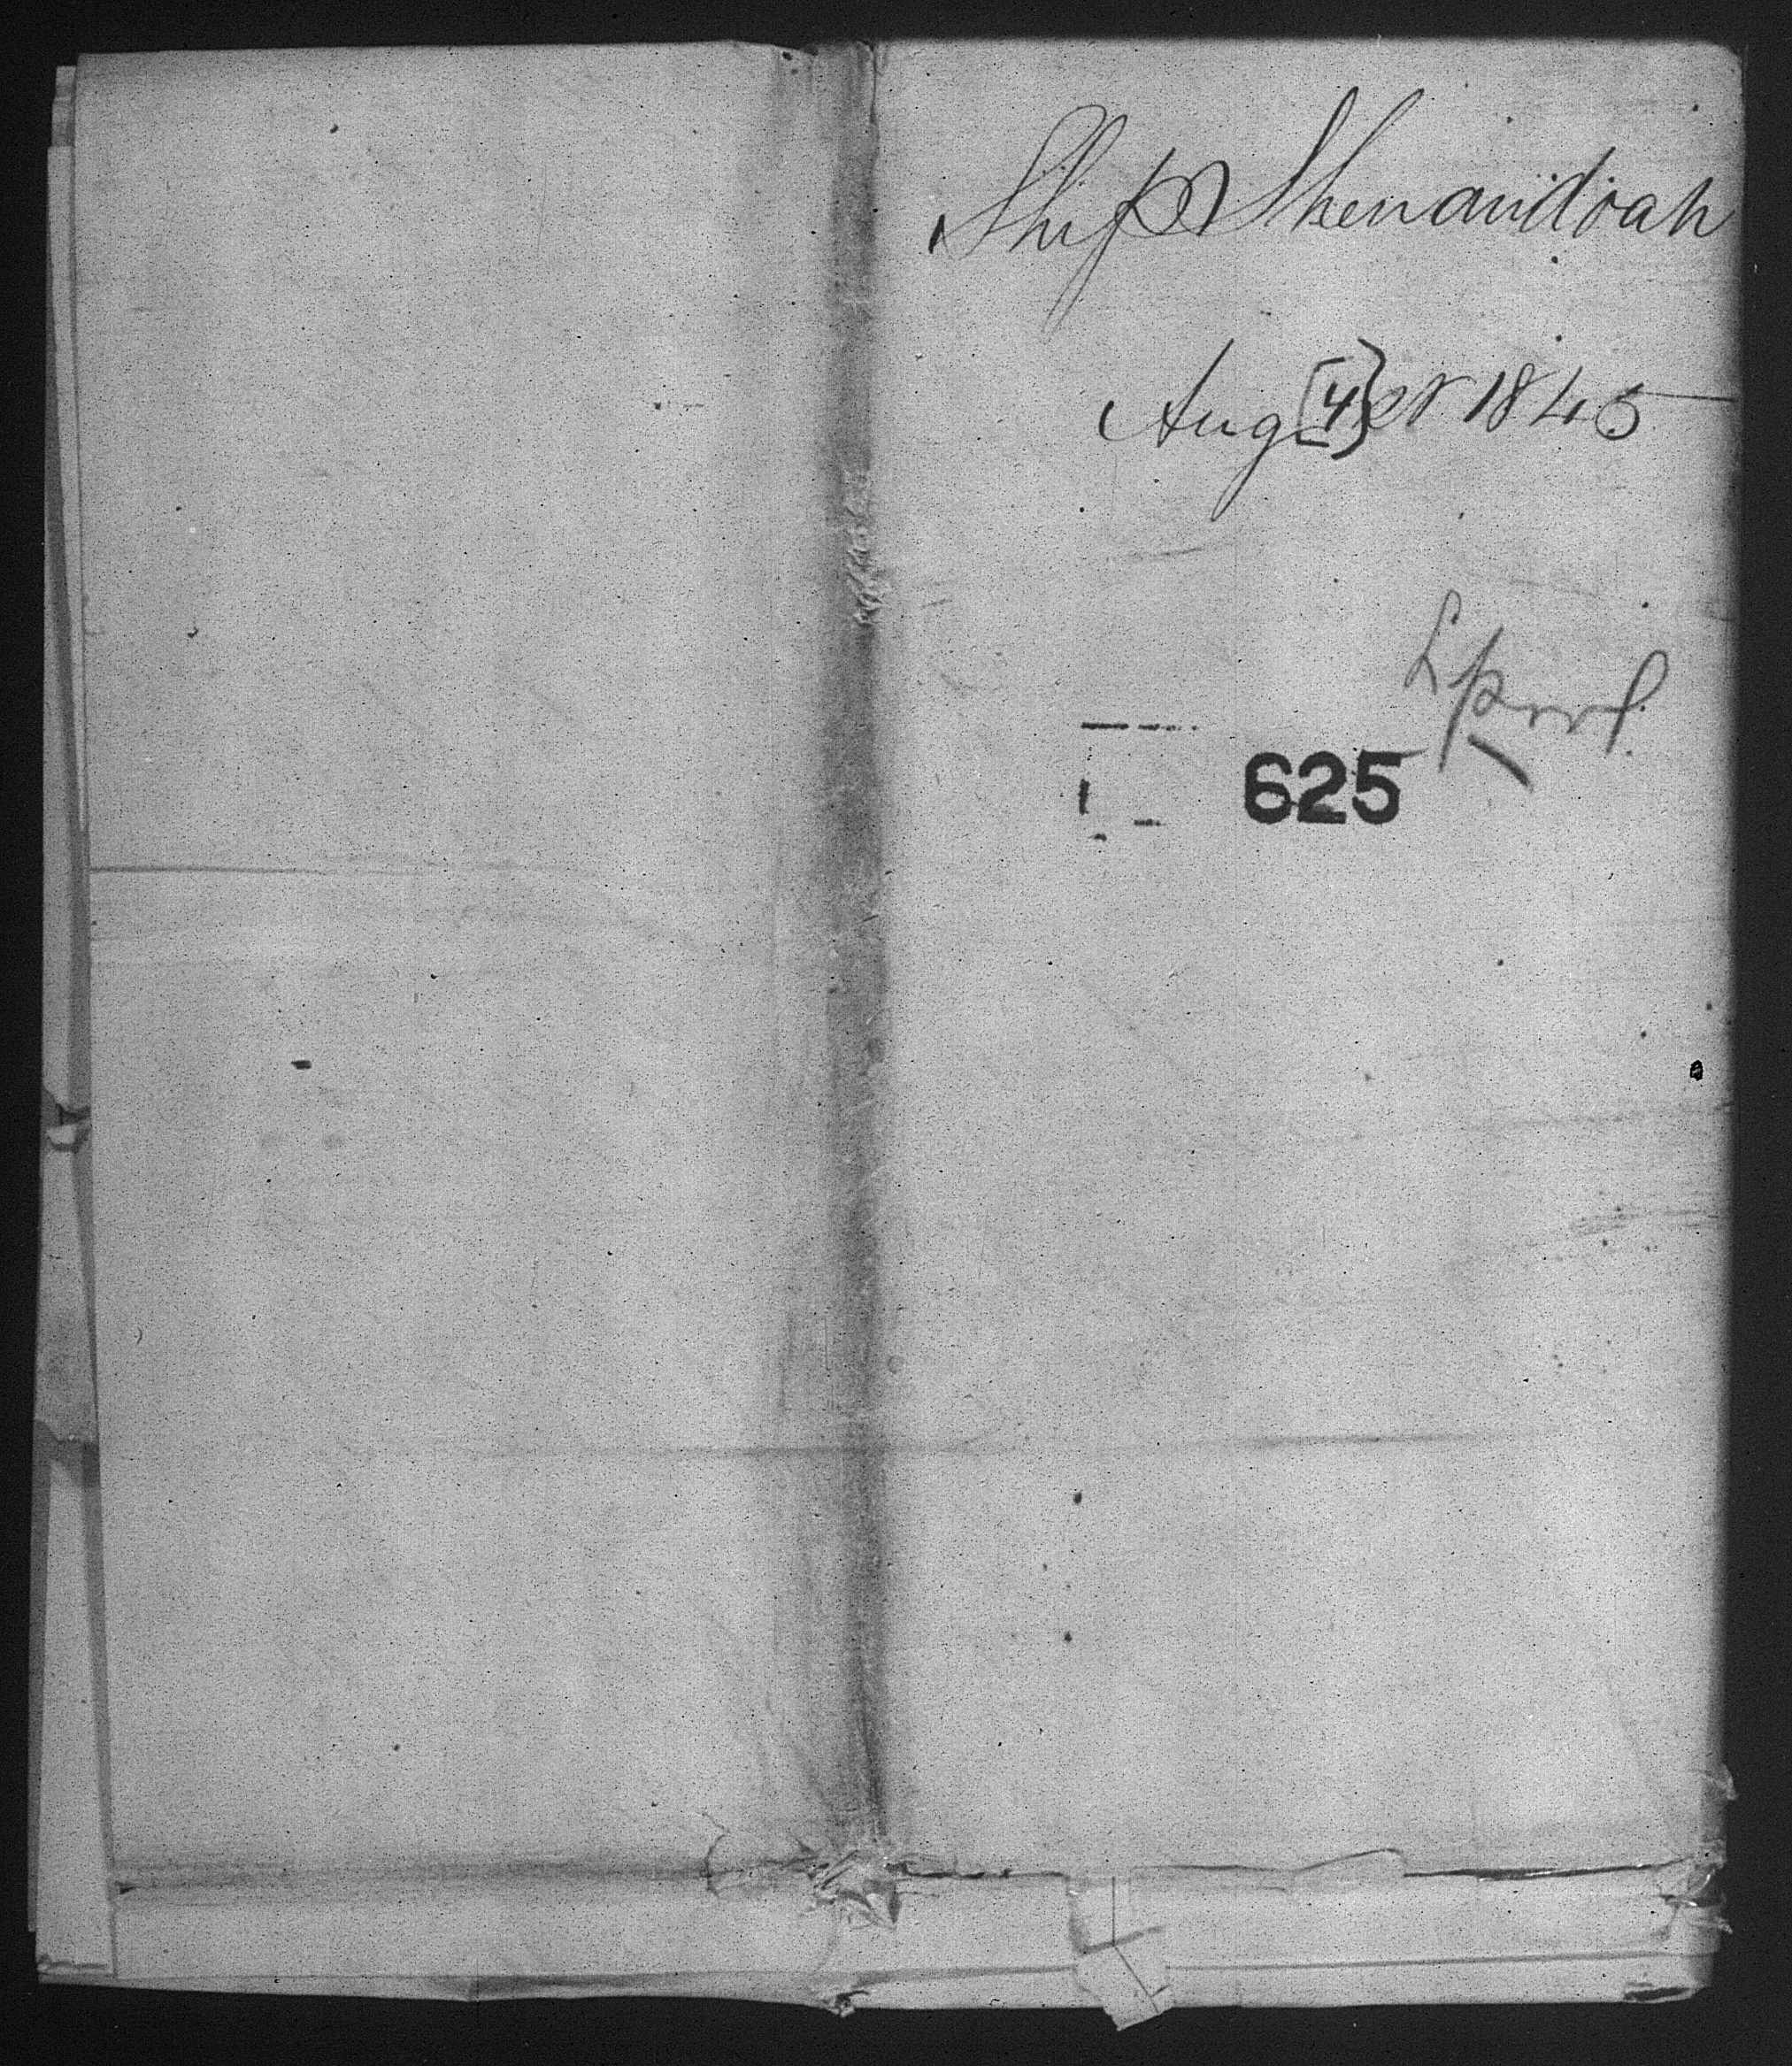 Ship Shenandoah
Aug [4] 1845
625